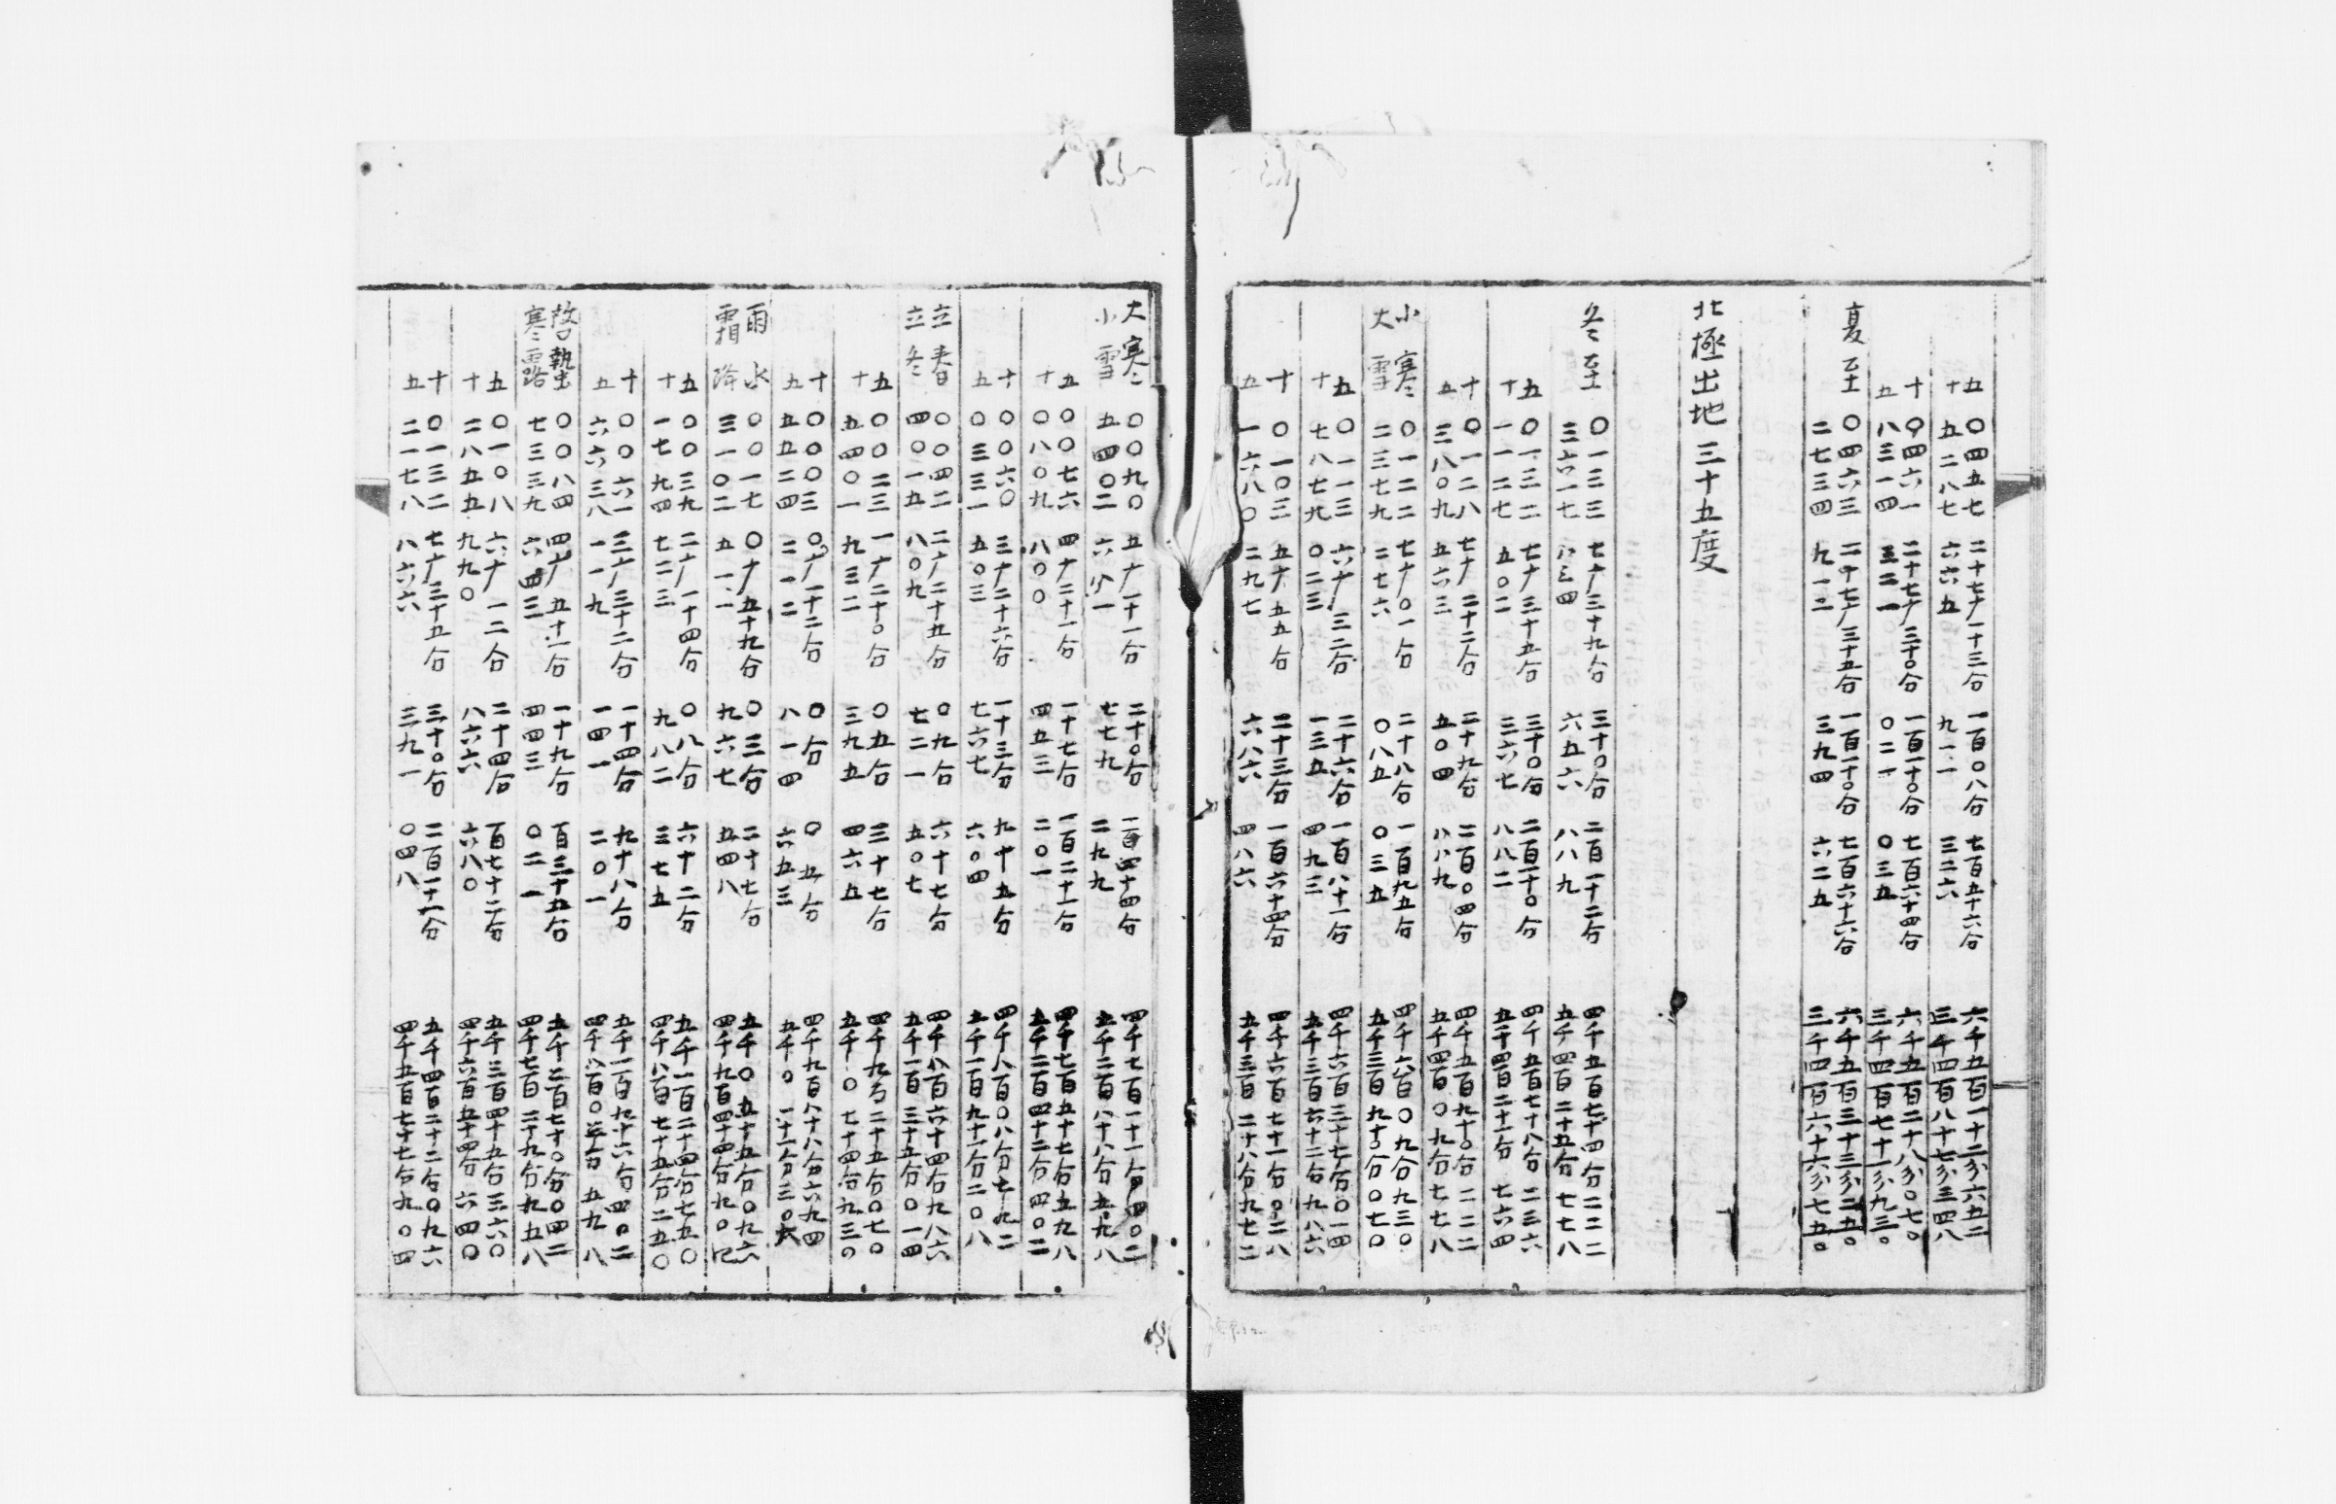 五 〇四五七 二十七广一十三分 一百〇八分 七百五十六分 六千五百一十二分六五二
十 五二八七 六六五 九一一 三二六 三千四百八十七分三四八
十 〇四六一 二十七广三十〇分 一百一十〇分 七百六十四分 六千五百二十八分〇七〇
五 八三一四 三二一 〇二一 〇三五 三千四百七十一分九三〇
夏至 〇四六三 二十七广三十五分 一百一十〇分 七百六十六分 六千五百三十三分二五〇
二七三四 九一二 三九四 六二五 三千四百六十六分七五〇
北極出地三十五度
冬至 〇一三三 七广三十九分 三十〇分 二百一十二分 四千五百七十四分二二二
三六一七 八三四 六五六 八八九 五千四百二十五分七七八
五 〇一三二 七广三十五分 三十〇分 二百一十〇分 四千五百七十八分二三六
十 一一二七 五〇二 三六七 八八二 五千四百二十一分七六四
十 〇一二八 七广二十二分 二十九分 二百〇四分 四千五百九十〇分二二二
五 三八〇九 五六三 五〇四 八八九 五千四百〇九分七七八
小寒 〇一二二 七广〇一分 二十八分 一百九五分 四千六百〇九分九三〇
大雪 二三七九 二七六 〇八五 〇三五 五千三百九十〇分〇七〇
五 〇一一三 六广三二分 二十六分 一百八十一分 四千六百三十七分〇一四
十 七八七九 〇二三 一三五 四九三 五千三百六十二分九八六
十 〇一〇三 五广五五分 二十三分 一百六十四分 四千六百七十一分〇二八
五 一六八〇 二九七 六八六 四八六 五千三百二十八分九七二
大寒 〇〇九〇 五广一十一分 二十〇分 一百四十四分 四千七百一十一分四〇二
小雪 五四〇二 六八一 七七九 二九九 五千二百八十八分五九八
五 〇〇七六 四广二十一分 一十七分 一百二十一分 四千七百五十七分五九八
十 〇八〇九 八〇〇 四五三 二〇一 五千二百四十二分四〇二
十 〇〇六〇 三广二十六分 一十三分 九十五分 四千八百〇八分七九二
五 〇三三一 五〇三 七六七 六〇四 五千一百九十一分二〇八
立春 〇〇四二 二广二十五分 〇九分 六十七分 四千八百六十四分九八六
立冬 四〇一五 八〇九 七二一 五〇七 五千一百三十五分〇一四
五 〇〇二三 一广二十〇分 〇五分 三十七分 四千九百二十五分〇七〇
十 五四〇一 九三二 三九五 四六五 五千〇七十四分九三〇
十 〇〇〇三 〇广一十二分 〇分 〇五分 四千九百八十八分六九四
九 五五二四 二一二 八一四 六五三 五千〇一十一分三〇六
雨水 〇〇一七 〇广五十九分 〇三分 二十七分 五千〇五十五分〇九六
霜降 三一〇二 五一一 九六七 五四八 四千九百四十四分九〇四
五 〇〇三九 二广一十四分 〇八分 六十二分 五千一百二十四分七五〇
十 一七九四 七二三 九八二 三七五 四千八百七十五分二五〇
十 〇〇六一 三广三十二分 一十四分 九十八分 五千一百九十六分四〇二
五 六六三八 一一九 一四一 二〇一 四千八百〇三分五九八
啓蟄 〇〇八四 四广五十一分 一十九分 百三十五分 五千二百七十〇分〇四二
寒露 七三三九 六四三 四四三 〇二一 四千七百二十九分九五八
五 〇一〇八 六广一二分 二十四分 百七十二分 五千三百四十五分三六〇
十 二八五五 九九〇 八六六 六八〇 四千六百五十四分六四〇
十 〇一三二 七广三十五分 三十〇分 二百一十一分 五千四百二十二分〇九六
五 二一七八 八六六 三九一 〇四八 四千五百七十七分九〇四